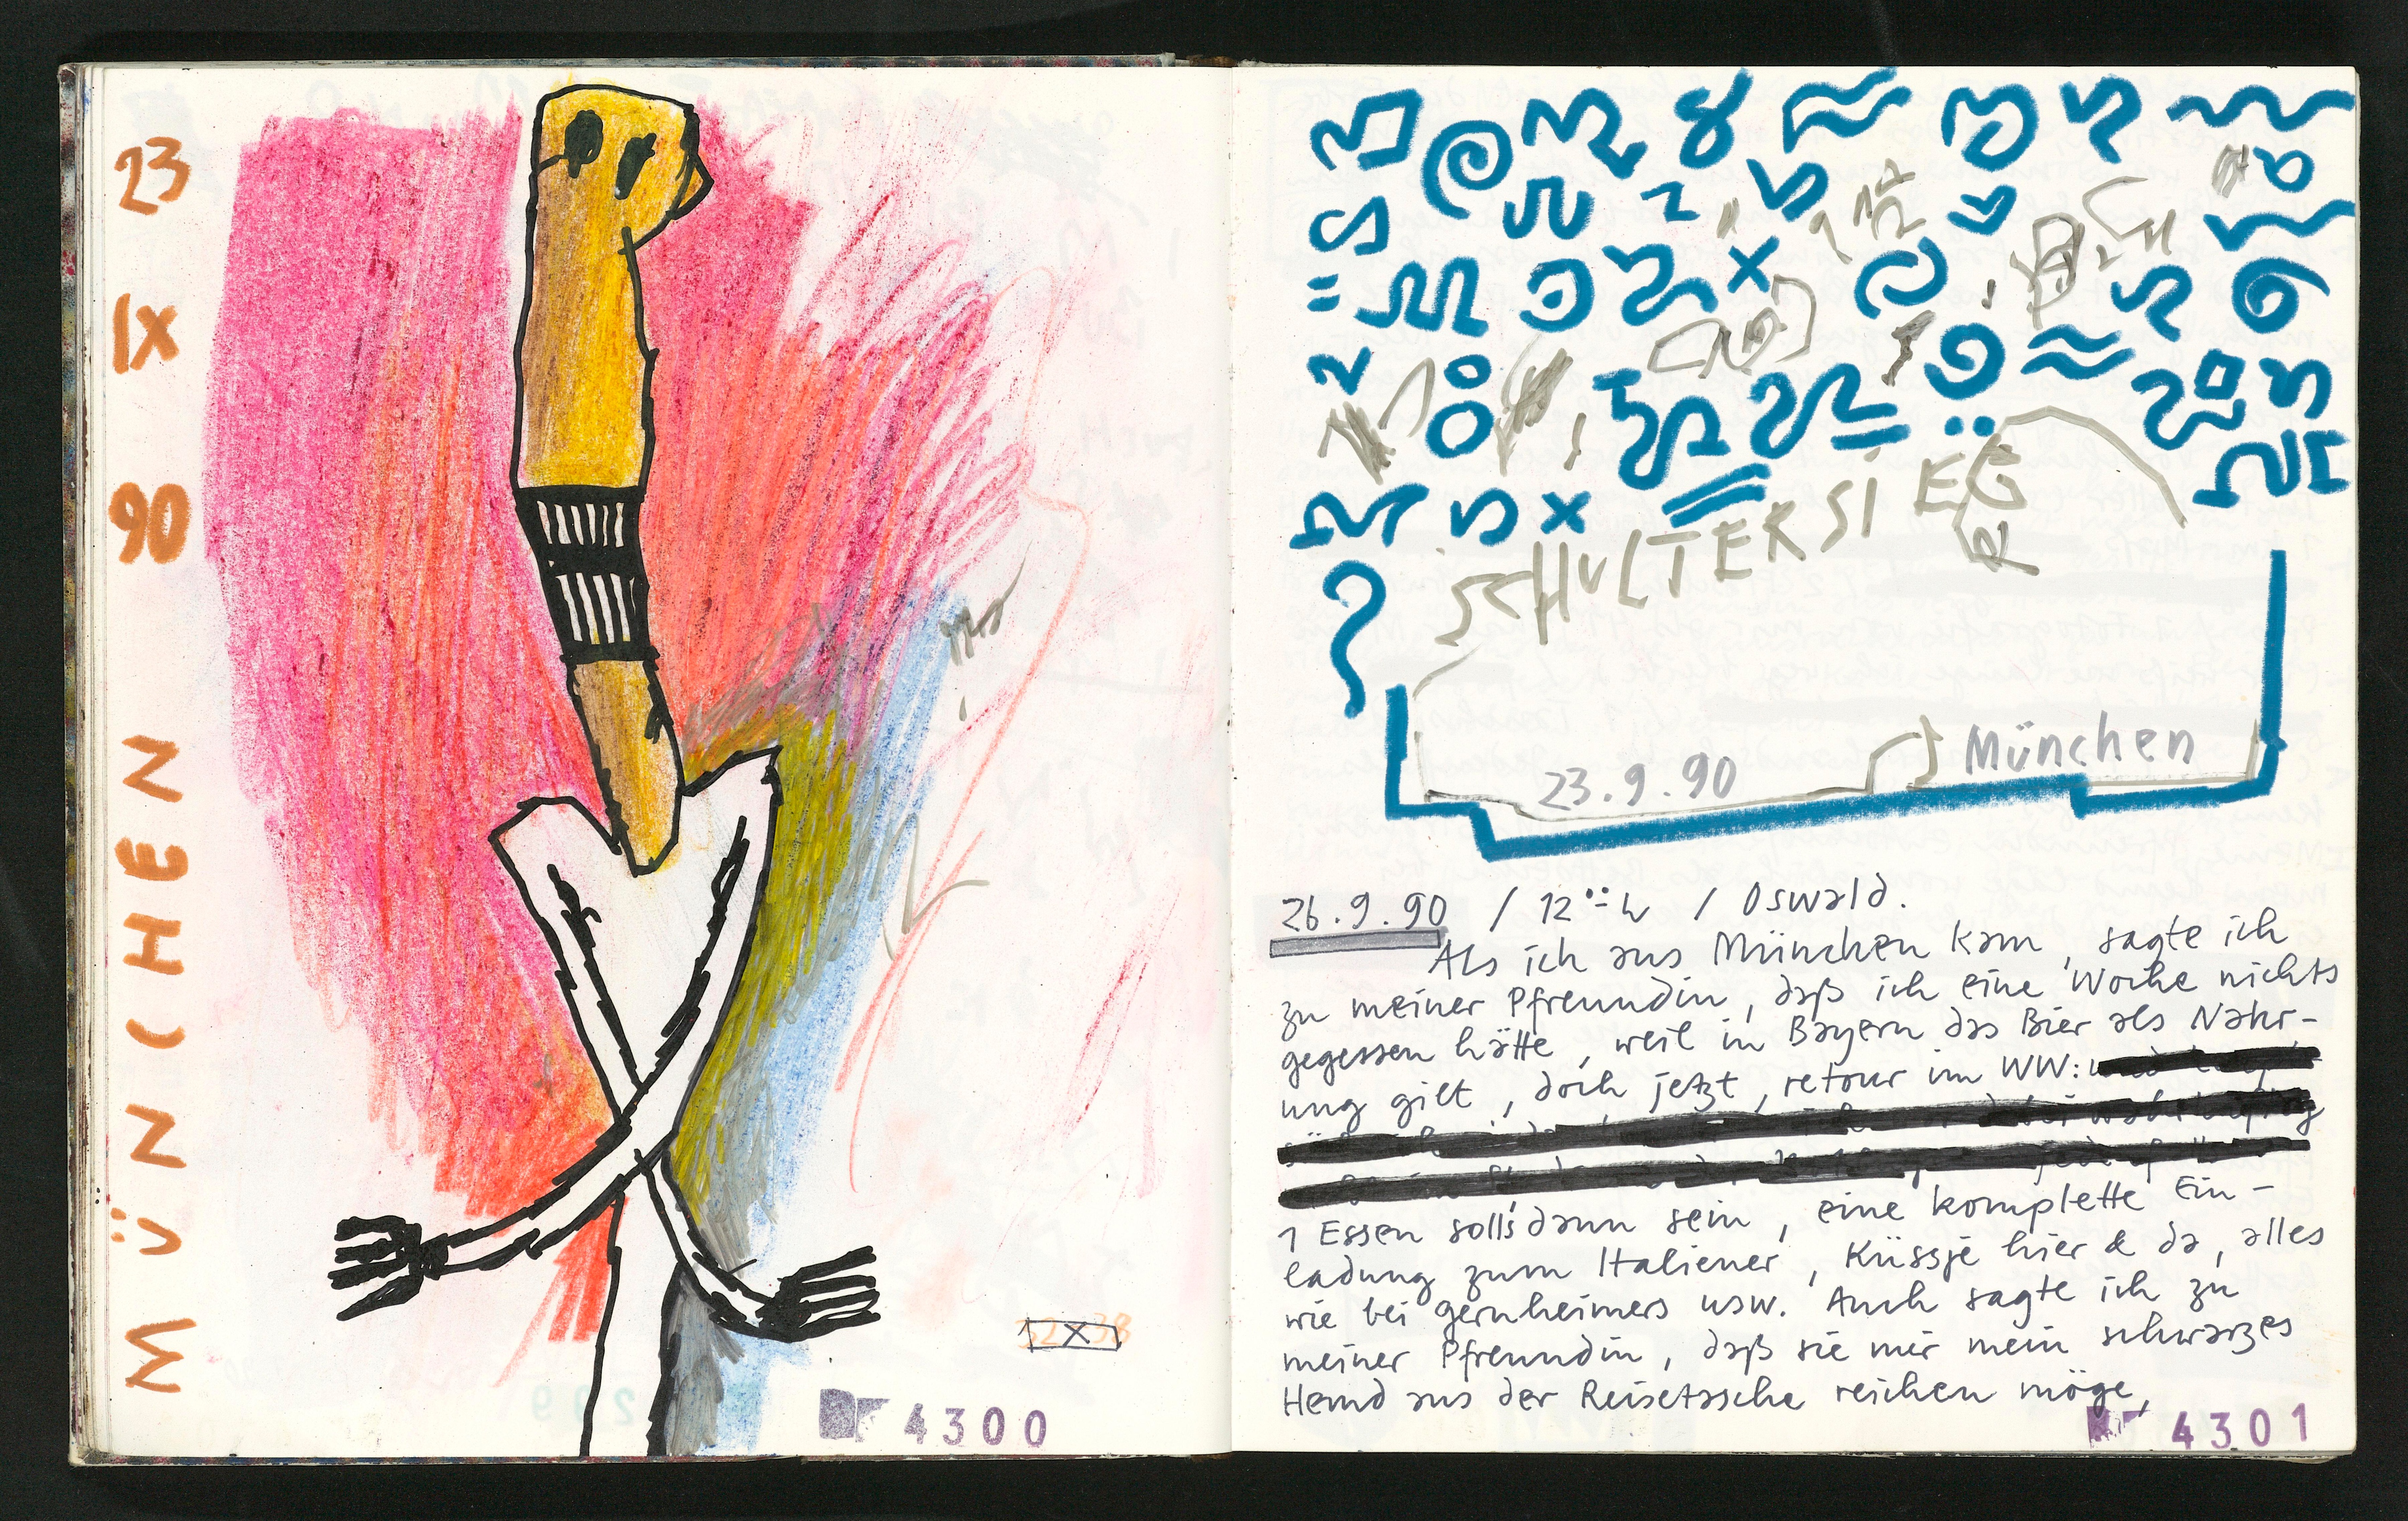 23
IX
90
MÜNCHEN
4300
SCHULTERSIEG
23.9.90
München
26.9.90 / 12°°h / Oswald.
Als ich aus München kam, sagte ich
zu meiner Pfreundin, daß ich eine Woche nichts
gegessen hätte, weil in Bayern das Bier als Nahr-
ung gilt, doch jetzt, retour im WW:
1 Essen solls dann sein, eine komplette Ein-
ladung zum Italiener, Küssje hier & da, alles
wie bei gernheimers usw. Auch sagte ich zu
meiner Pfreundin, daß sie mir mein schwarzes
Hemd aus der Reisetasche reichen möge,
4301